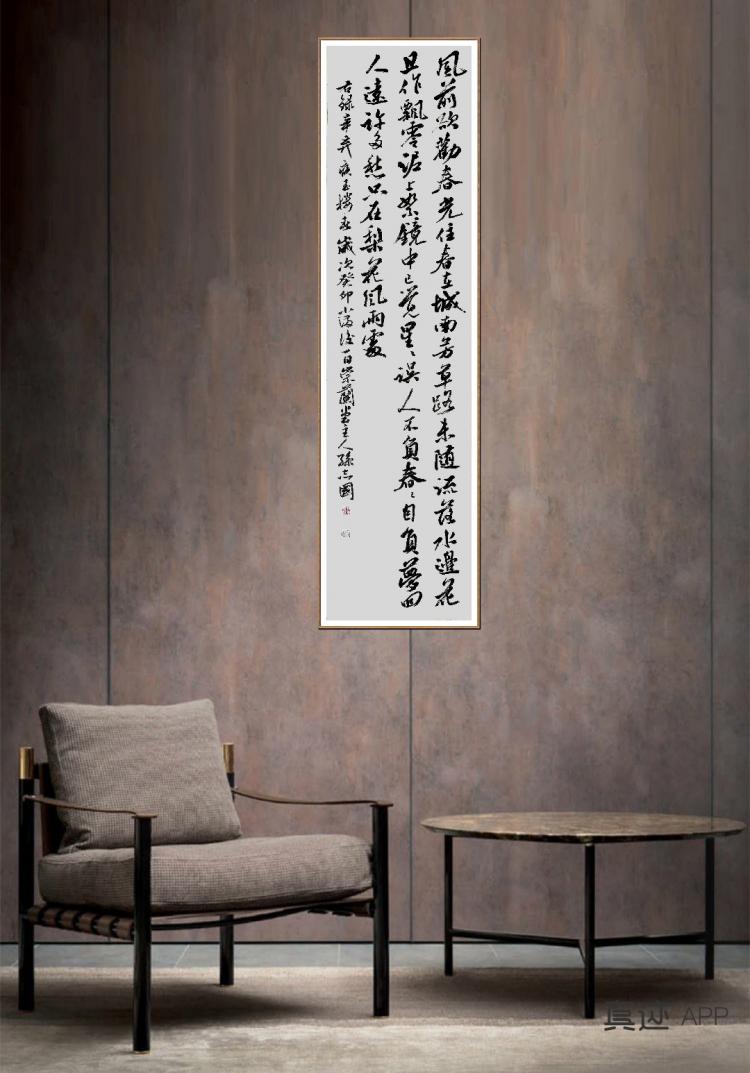 風前欲勸春光住春在城南芳草路未随流落水邊花
且作飄零泥上絮鏡中已覺星〻誤人不負春〻自負夢回
人遠許多愁只在梨花風雨處
右錄辛弃疾玉樓春歲次癸卯小滿後一日蘭堂主人孫志國
真迹 APP